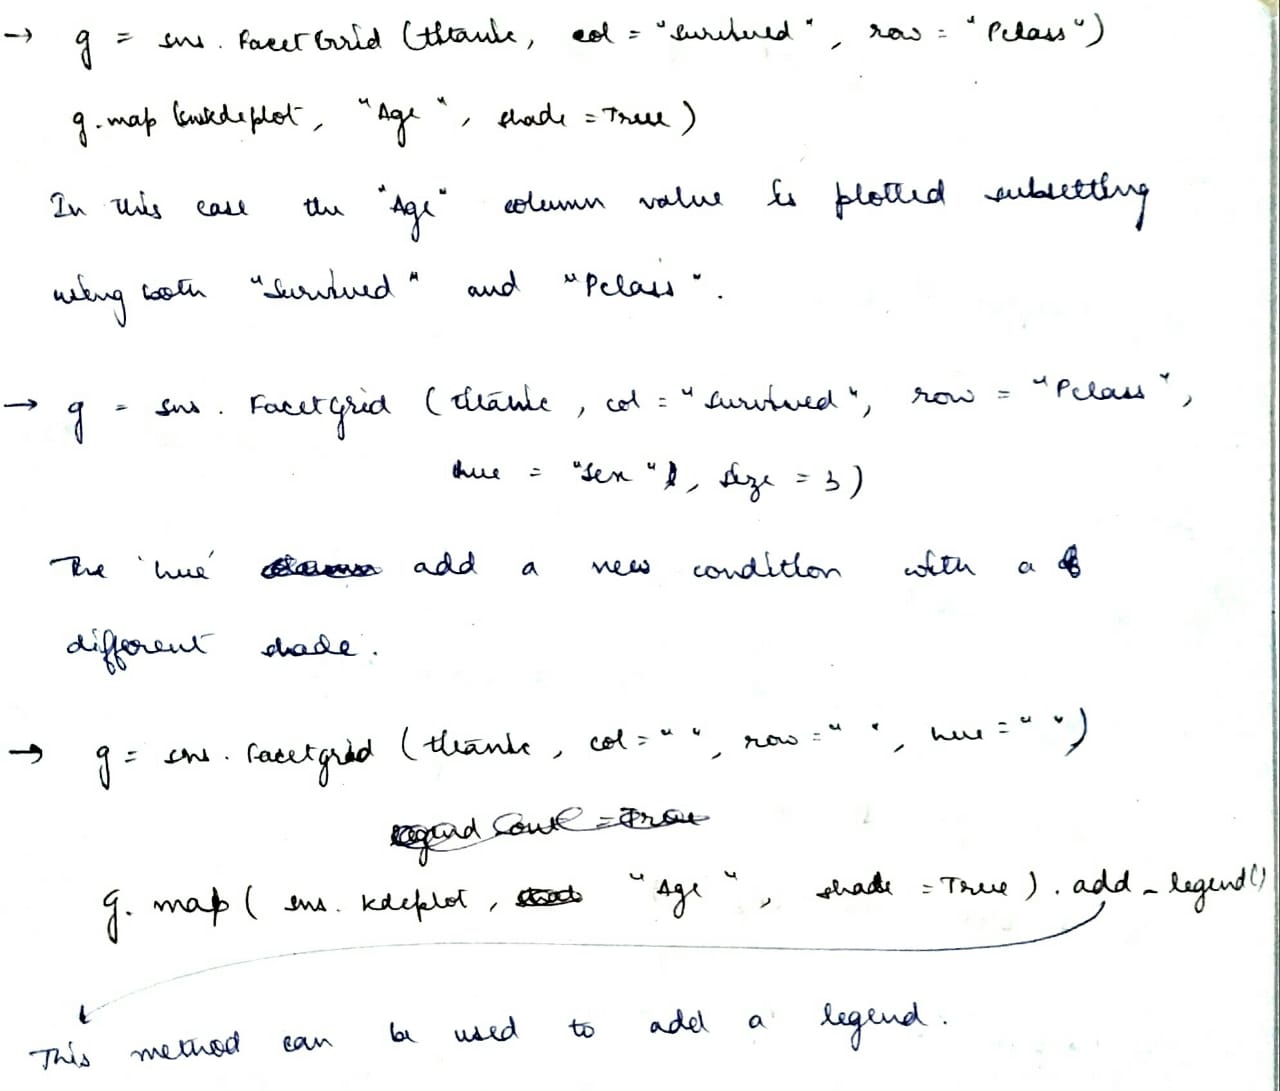 → g = sns. FacetGrid (titanic, col = "Survived", row = "Pclass")
g.map (snskdeplot, "Age", shade = True)
In this case the "Age" column value is plotted subsetting
using both "Survived" and "Pclass".
→ g = sns. FacetGrid (titanic, col = "Survived", row = "Pclass",
hue = "Sex", size = 3)
The 'hue' add a new condition with a
different shade.
→ g = sns. facetgrid (titanic, col = " ", row = " ", hue = " ")
g. map ( sns. kdeplot, "Age", shade = True ). add_legend()
This method can be used to add a legend.